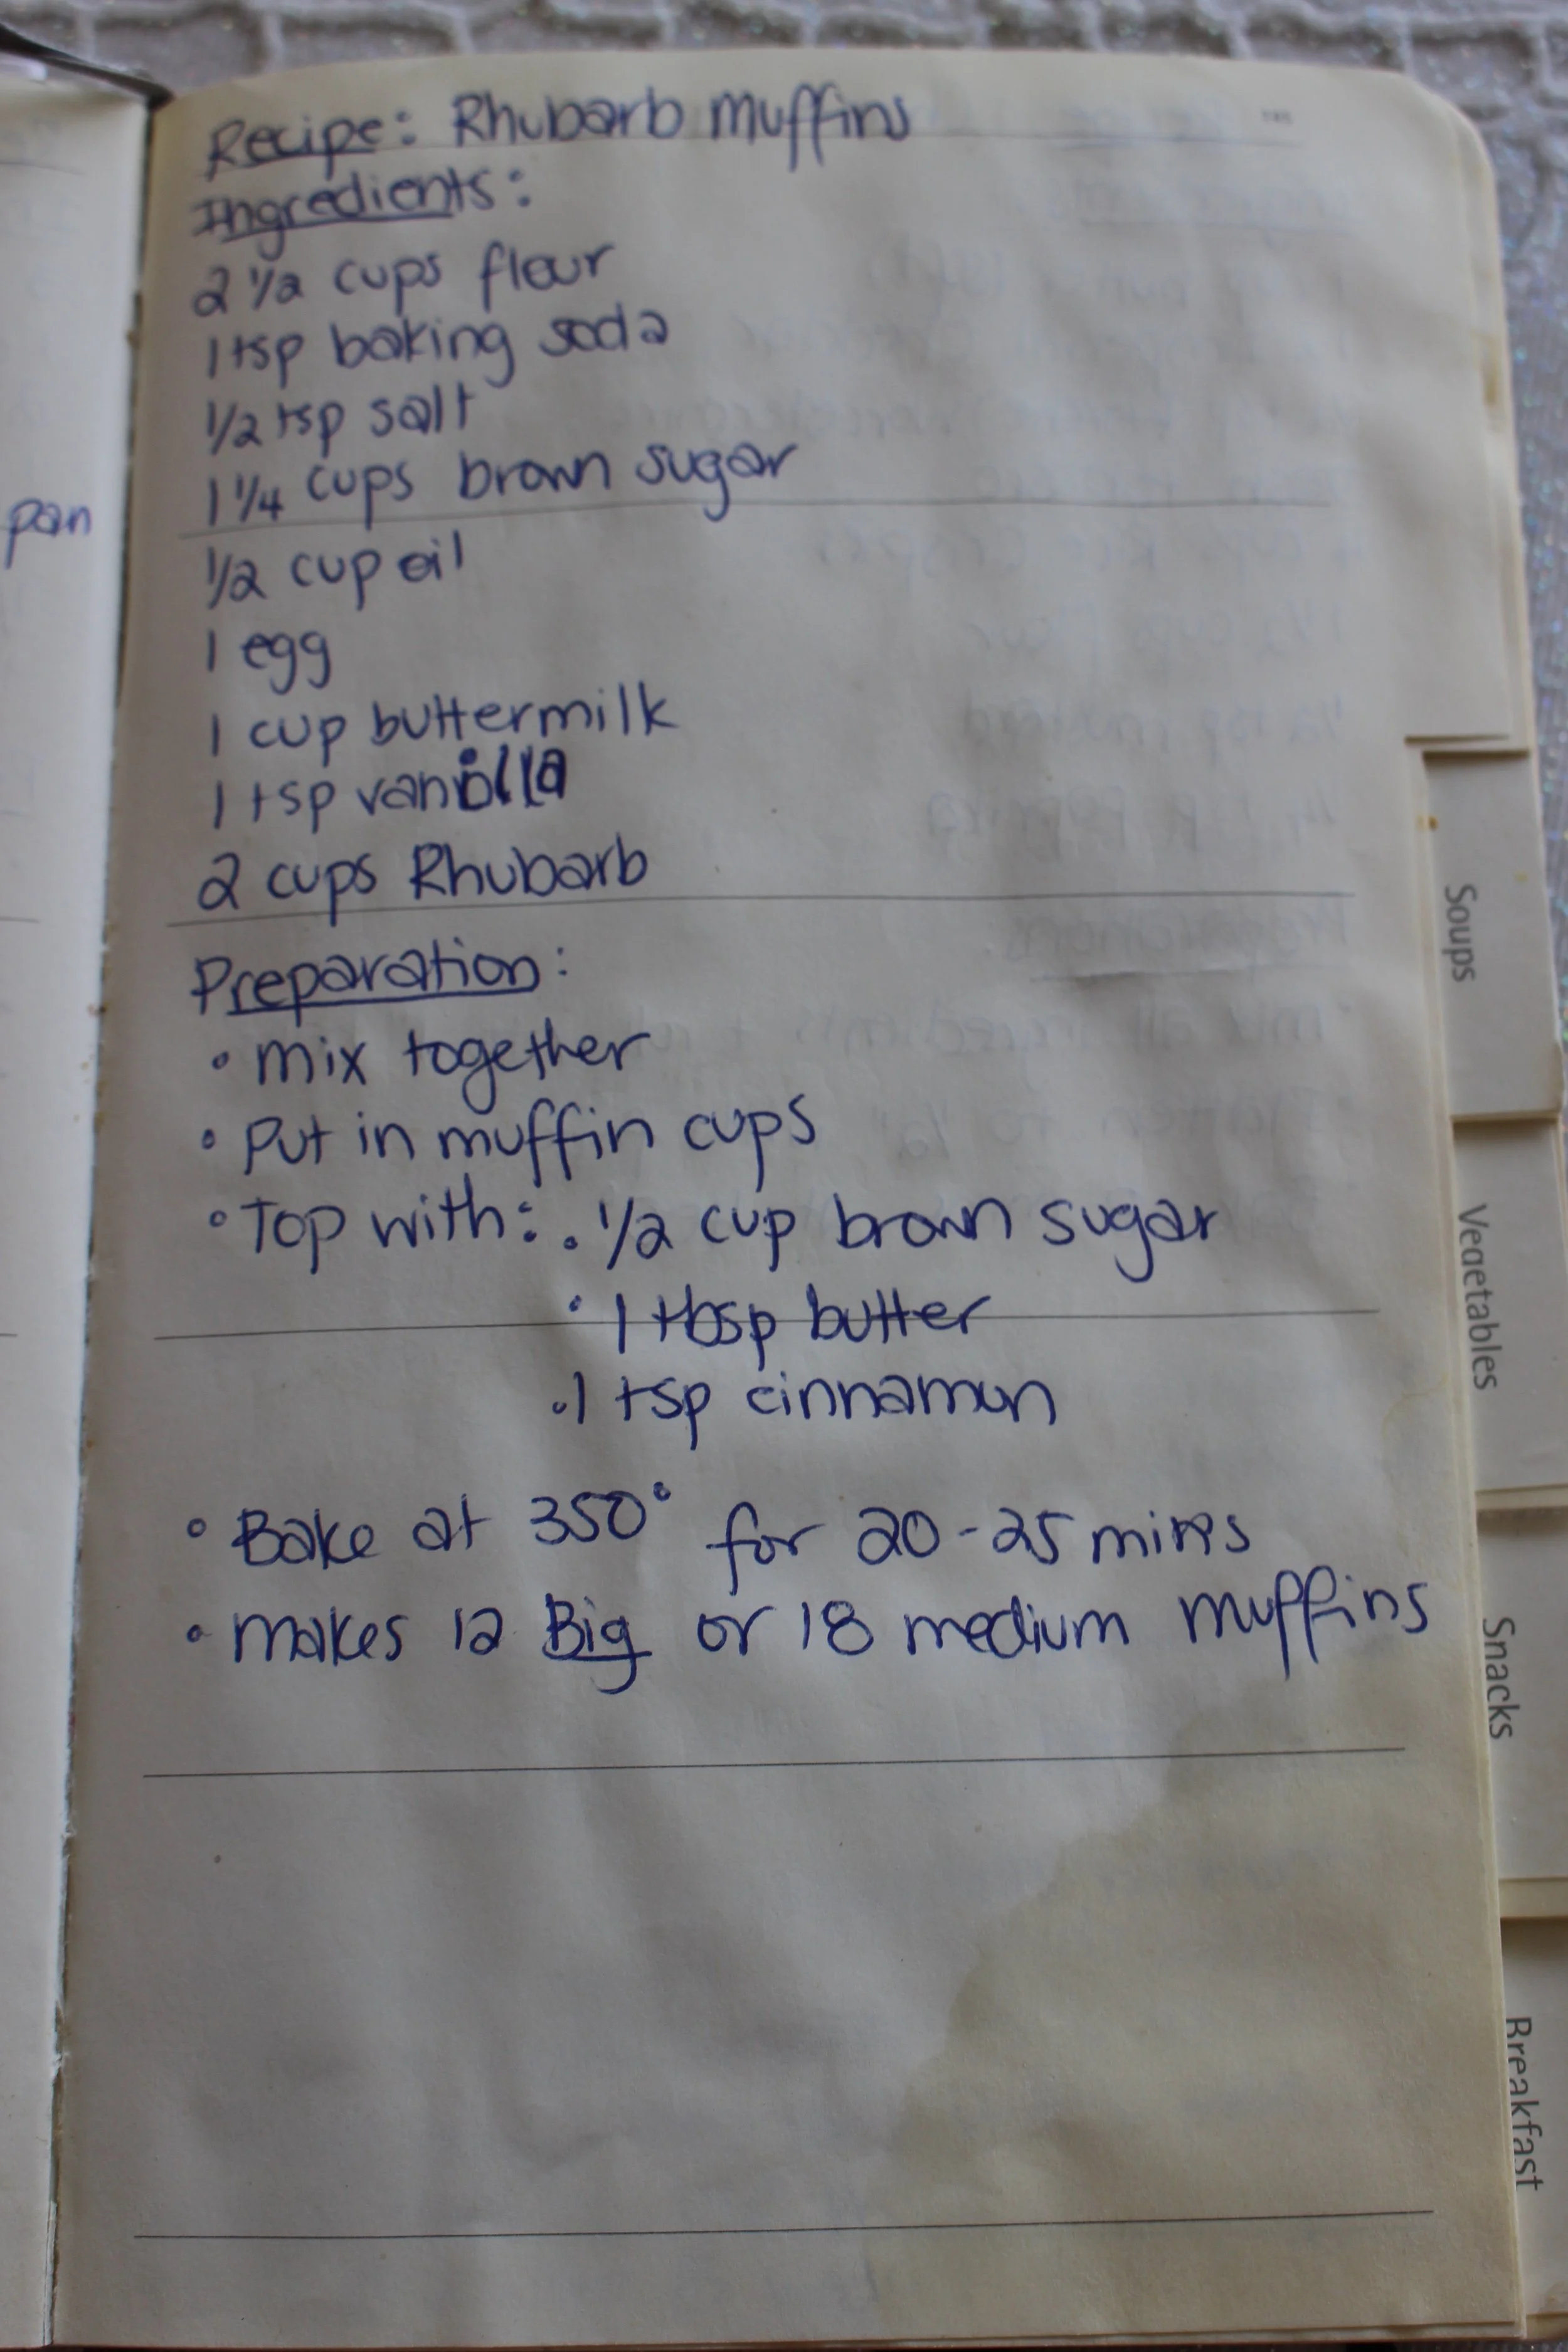 pan
Recipe: Rhubarb Muffins
Ingredients:
2 1/2 cups flour
1 tsp baking soda
1/2 tsp salt
1 1/4 cups brown sugar
1/2 cup oil
1 egg
1 cup buttermilk
1 tsp vanilla
2 cups Rhubarb
Preparation:
• mix together
• Put in muffin cups
• Top with: • 1/2 cup brown sugar
• 1 tbsp butter
• 1 tsp cinnamon
• Bake at 350° for 20-25 mins
• makes 12 Big or 18 medium muffins
Soups
Vegetables
Snacks
Breakfast